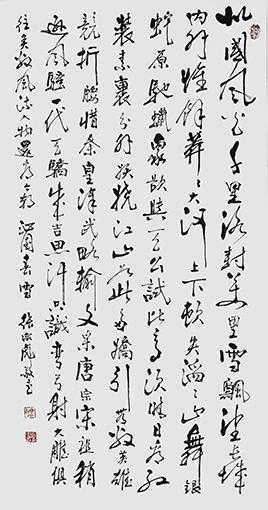 北國風光千里冰封萬里雪飄望長城
内外惟餘莽莽大河上下頓失滔滔山舞銀
蛇原馳蠟象欲與天公試比高須晴日看紅
裝素裹分外妖嬈江山如此多嬌引無數英雄
競折腰惜秦皇漢武略輸文采唐宗宋祖稍
遜風騷一代天驕成吉思汗只識彎弓射大雕俱
往矣數風流人物還看今朝 沁園春雪